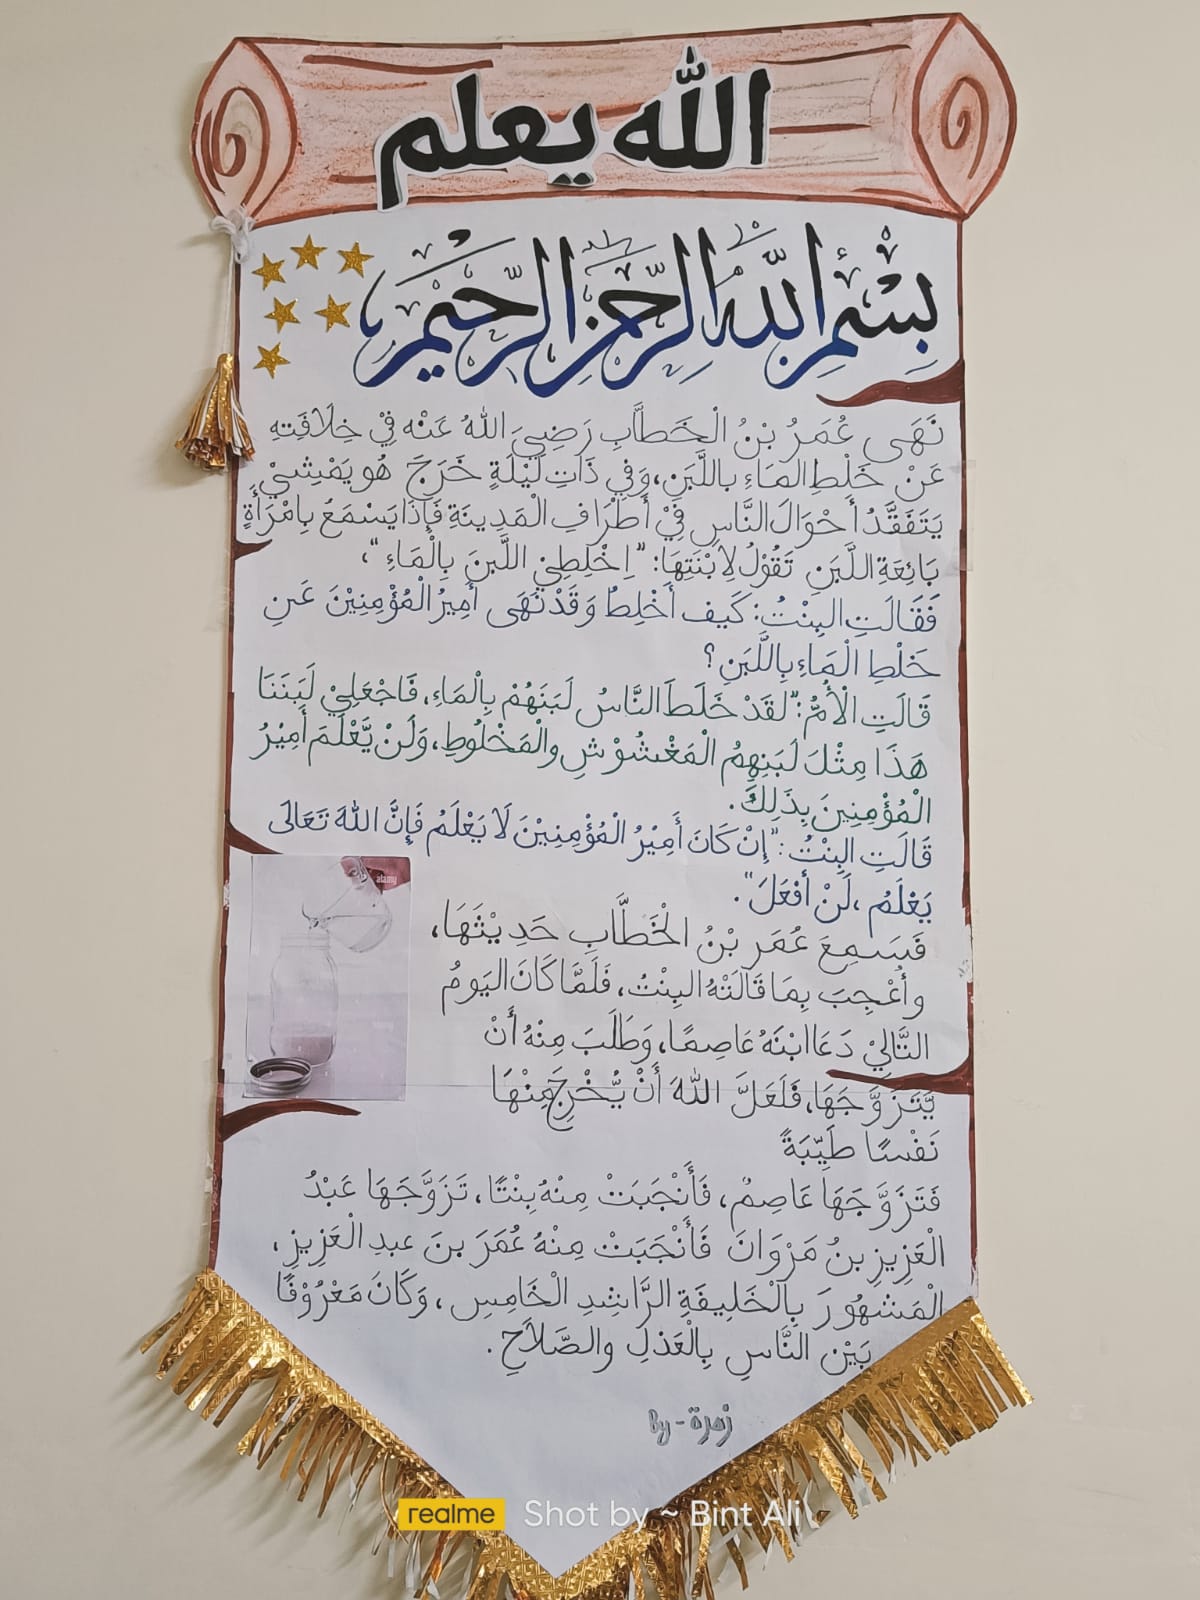 الله يعلم
بِسْمِ اللهِ الرَّحْمٰنِ الرَّحِيْمِ
نَهَى عُمَرُ بْنُ الْخَطَّابِ رَضِيَ اللهُ عَنْه فِيْ خِلَافَتِهِ
عَنْ خَلْطِ المَاءِ باللَّبَنِ، وَفِي ذَاتِ لَيْلَةٍ خَرَجَ هُو يَمْشِيْ
يَتَفَقَّدُ أَحْوَالَ النَّاسِ فِيْ أَطْرَافِ الْمَدِينَةِ فَإِذَا يَسْمَعُ بِامْرَأَةٍ
بَائِعَةِ اللَّبَنِ تَقُوْلُ لِابْنَتِهَا: "اِخْلِطِيْ اللَّبنَ بِالْمَاءِ"،
فَقَالَتِ البِنْتُ: كَيف أَخْلِطُ وَقَدْ نَهَى أَمِيرُ الْمُؤْمِنِيْنَ عَنِ
خَلْطِ الْمَاءِ بِاللَّبَنِ؟
قَالَتِ الْأُمُّ: "لقَدْ خَلَطَ النَّاسُ لَبَنَهُمْ بِالْمَاءِ، فَاجْعَلِيْ لَبَنَنَا
هَذَا مِثْلَ لَبَنِهِمُ الْمَغْشُوْشِ والْمَخْلُوطِ، وَلَنْ يَّعْلَمَ أَمِيْرُ
الْمُؤْمِنِينَ بِذَلِكَ.
قَالَتِ البِنْتُ: "إِنْ كَانَ أَمِيْرُ الْمُؤْمِنِيْنَ لَا يَعْلَمُ فَإِنَّ اللهَ تَعَالَى
يَعْلَمُ، لَنْ أَفْعَلَ".
alamy
فَسَمِعَ عُمَر بْنُ الْخَطَّابِ حَدِيْثَهَا،
وأُعْجِبَ بِمَا قَالَتْهُ البِنْتُ، فَلَمَّا كَانَ اليَومُ
التَّالِيْ دَعَا ابْنَهُ عَاصِمًا، وَطَلَبَ مِنْهُ أَنْ
يَّتَزَوَّجَهَا، فَلَعَلَّ اللهَ أَنْ يُّخْرِجَ مِنْهَا
نَفْسًا طَيِّبَةً
فَتَزَوَّجَهَا عَاصِمٌ، فَأَنْجَبَتْ مِنْهُ بِنْتًا، تَزَوَّجَهَا عَبْدُ
الْعَزِيزِ بنُ مَرْوَانَ فَأَنْجَبَتْ مِنْهُ عُمَرَ بنَ عبدِ الْعَزِيزِ،
الْمَشهُورَ بِالْخَلِيفَةِ الرَّاشِدِ الْخَامِسِ، وَكَانَ مَعْرُوْفًا
بَيْن النَّاسِ بِالْعَدْلِ والصَّلَاحِ.
By - زهرة
realme Shot by ~ Bint Ali